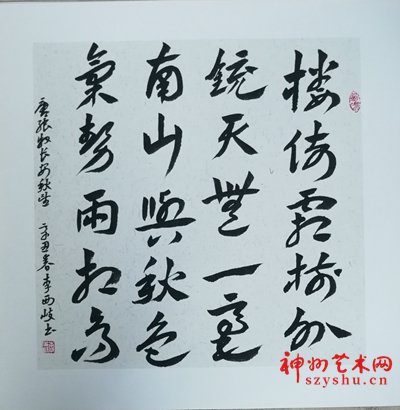 楼倚霜樹外
鏡天無一毫
南山與秋色
氣勢兩相高
唐张牧长安秋望 辛丑春李西岐书
神州艺术网
szyshu.cn